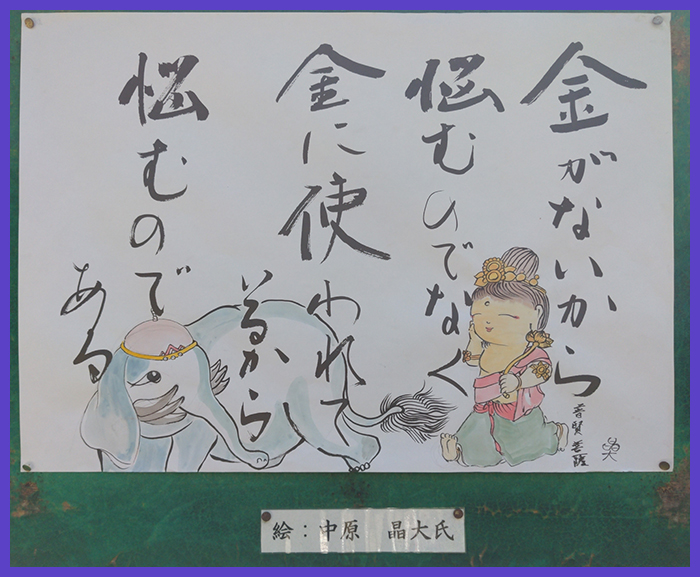 金がないから
悩むのでなく
金に使われて
いるから
悩むので
ある
普賢菩薩
絵：中原 晶大氏